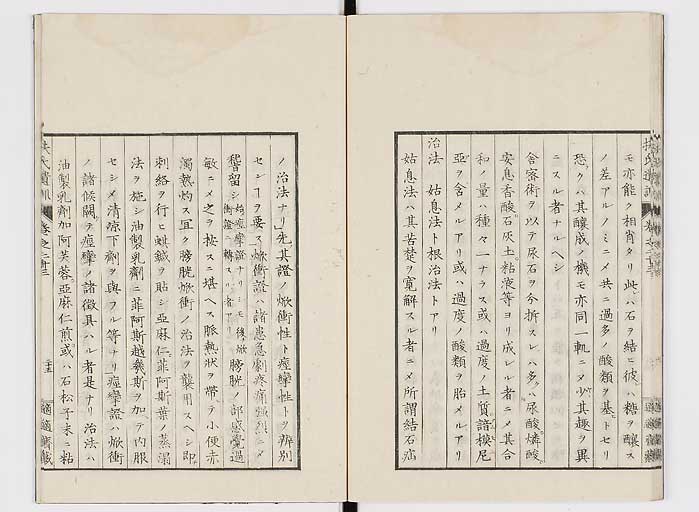 モ亦能ク相肖タリ此ハ石ヲ結ビ彼ハ糖ヲ釀ス
ノ差アルノミニメ共ニ過多ノ酸類ヲ基トセリ
恐クハ其釀成ノ機モ亦同一軌ニメ少其趣ヲ異
ニスル者ナルヘシ
舍密術ヲ以テ尿石ヲ分拆スレハ多ハ尿酸燐酸
安息香酸石灰土粘液等ヨリ成レル者ニメ其合
和ノ量ハ種々一ナラス或ハ過度ノ土質諳模尼
亞ヲ含メルアリ或ハ過度ノ酸類ヲ胎メルアリ
治法 姑息法ト根治法トアリ
姑息法ハ其苦楚ヲ寛解スル者ニメ所謂結石疝
ノ治法ナリ先其證ノ焮衝性ト痙攣性トヲ辨別
センヿヲ要ス焮衝證ハ諸患急劇疼痛強烈ニメ
稽留シ
膀胱ノ部感覺過
敏ニメ之ヲ按スニ堪ヘス脈熱状ヲ帶テ小便赤
濁熱灼ス宜ク膀胱焮衝ノ治法ヲ襲用スヘシ即
刺絡ヲ行ヒ蜞鍼ヲ貼シ亞麻仁菲阿斯葉ノ蒸溻
法ヲ施シ油製乳劑ニ菲阿斯越幾斯ヲ加テ内服
セシメ清涼下劑ヲ與フル等ナリ痙攣證ハ焮衝
ノ諸候闕テ痙攣ノ諸徴具ハル者是ナリ治法ハ
油製乳劑加阿芙蓉亞麻仁煎或ハ石松子末ニ粘
扶氏遺訓 卷之二十三
二十五
適適齋藏